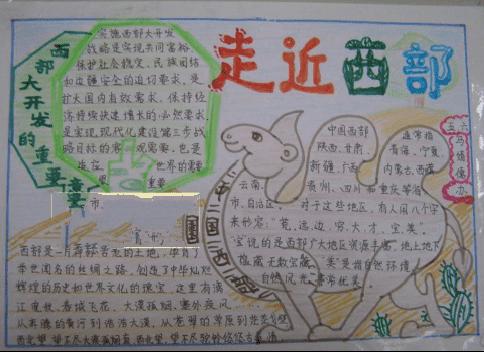 走近西部
西部大开发的重要意义
实施西部大开发
战略是实现共同富裕、
保护社会稳定、民族团结
和边疆安全的迫切要求,是
扩大国内有效需求,保持经
济持续快速增长的必然要求,
是实现现代化建设第三步战
略目标的客观需要,也是
世界的需要
重要
市
五六
冯倩倩
办
中国西部
通常指
陕西、甘肃、
青海、宁夏、
新疆、广西、
内蒙古、西藏
云南、
贵州、四川和重庆等省
市、自治区。
对于这些地区,有人用八个字
来形容:"荒、远、边、穷、大、才、宝、美"。
"宝"说的是西部广大地区资源丰富,地上地下
蕴藏无数宝藏。
"美"是指自然环境、
自然风光非常优美。
西部是一片
的土地,孕育了
举世闻名的丝绸之路,创造了中华灿烂
辉煌的历史和世界文化的瑰宝,这里有漓
江虎城、春城飞花、大漠孤烟、塞外疾风……
从奔腾的黄河到浩浩大漠,从苍翠的草原到茫茫戈壁
西北望,望不尽大漠孤烟直,西北望,望不尽